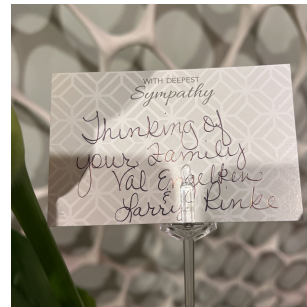 WITH DEEPEST
Sympathy
Thinking of
your family
Val &
& Larry Rinke